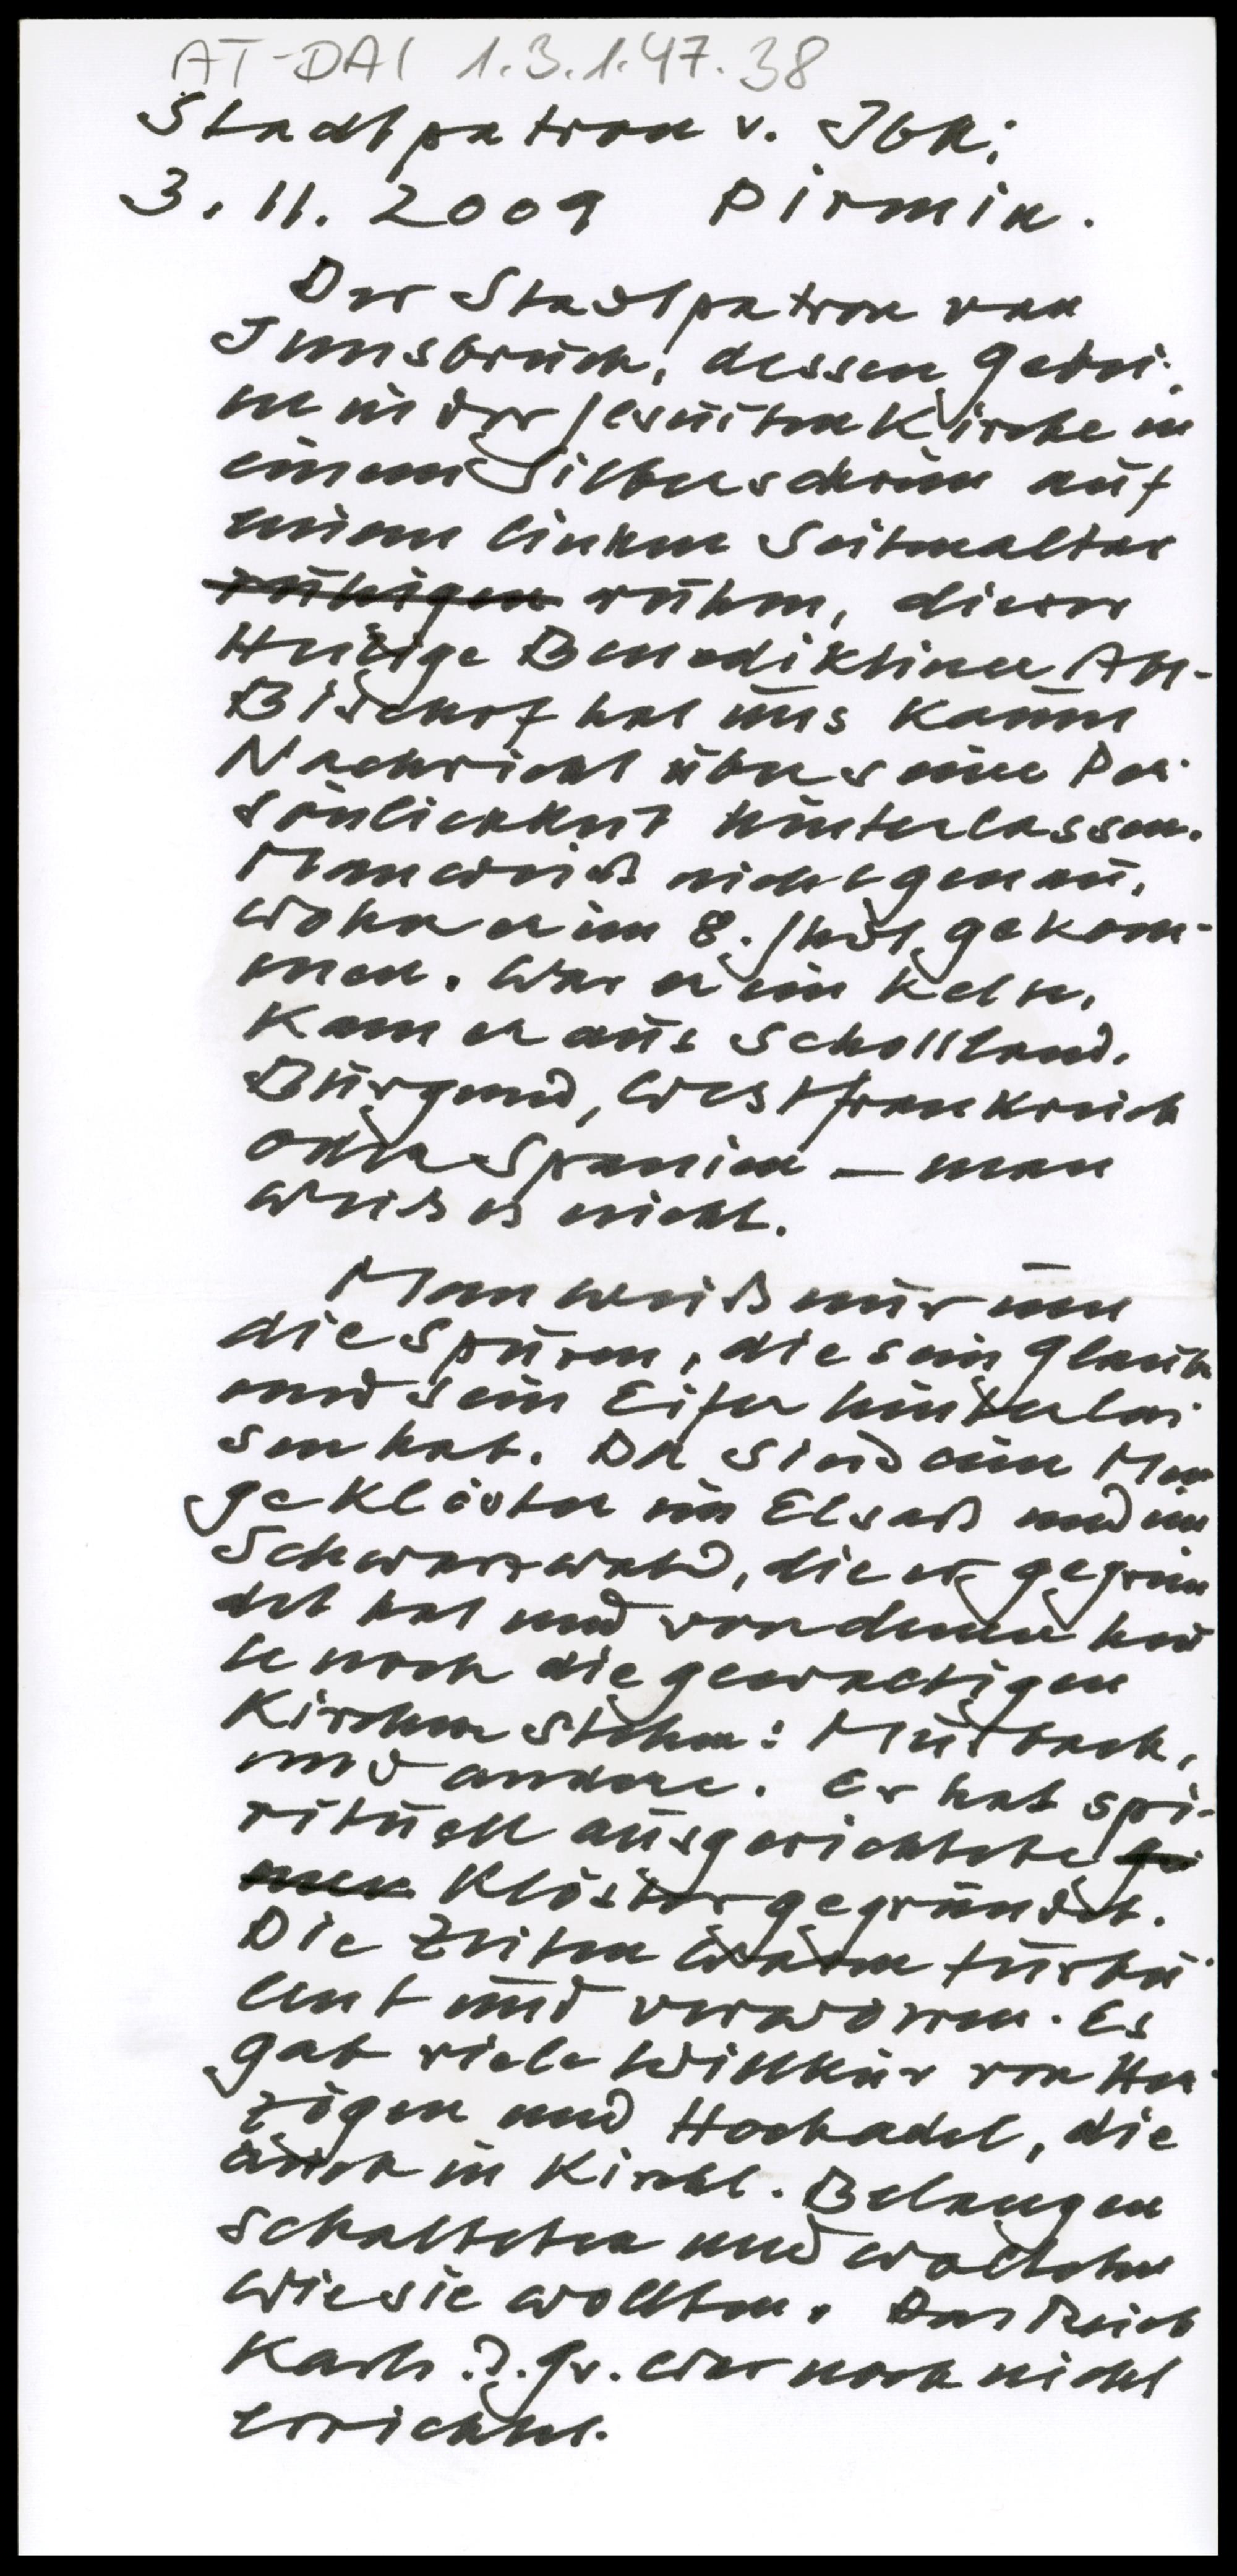 AT-DAI 1.3.1.47.38
Stadtpatron v. Ibk;
3.11.2009 Pirmin.
Der Stadtpatron von
Innsbruck, dessen Gebei-
ne in der Jesuitenkirche in
einem Silberschrein auf
einem linken Seitenaltar
ruhen, dieser
Heilige Benediktiner Abt-
Bischof hat uns kaum
Nachricht über seine Per-
sönlichkeit hinterlassen.
Man weiß nicht genau,
woher er im 8. Jhdt. gekom-
men. War er ein Kelte,
kam er aus Schottland,
Burgund, Westfrankreich
oder Spanien — man
weiß es nicht.
Man weiß nur um
die Spuren, die sein Glaube
und sein Eifer hinterlas-
sen hat. Da sind eine Men
ge Klöster im Elsaß und im
Schwarzwald, die er gegrün
det hat und von denen heu
te noch die gewaltigen
Kirchen stehen: Murbach,
und andere. Er hat spi-
rituell ausgerichtete
Klöster gegründet.
Die Zeiten waren turbu-
lent und verworren. Es
gab viele Willkür von Her-
zögen und Hochadel, die
auch in kirchl. Belangen
schalteten und walteten
wie sie wollten. Das Reich
Karls d. Gr. war noch nicht
errichtet.